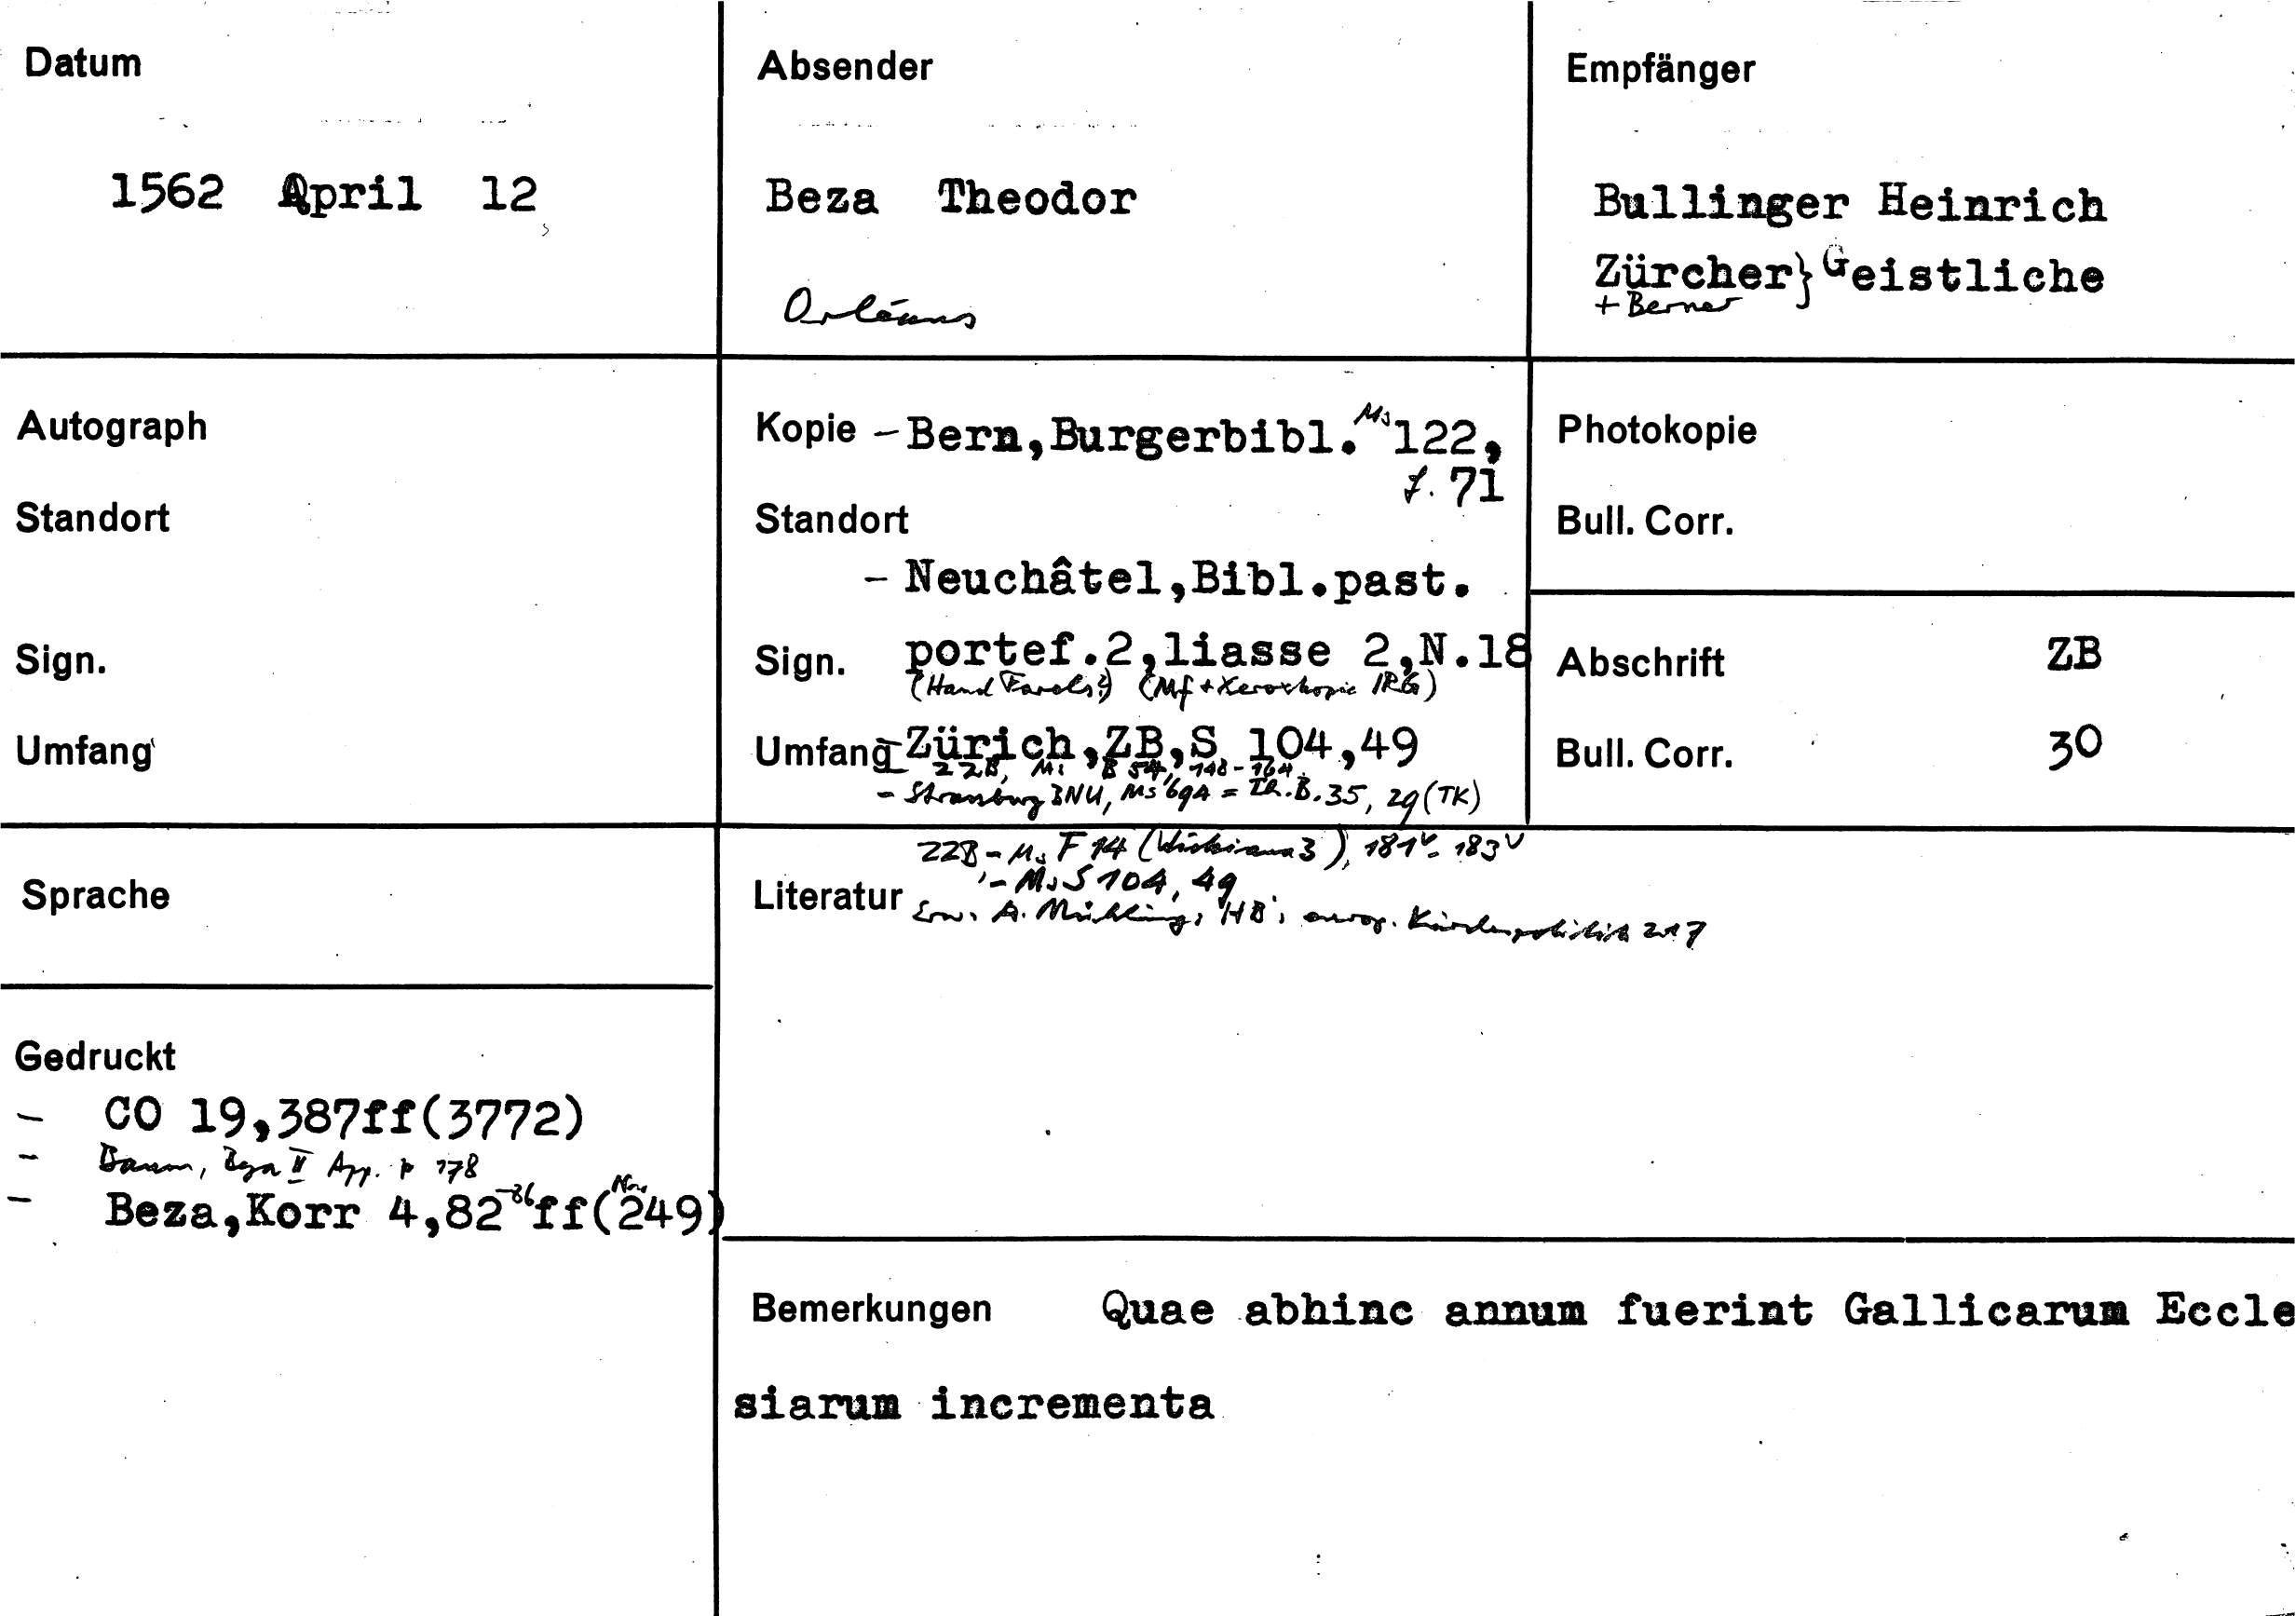 Datum
1562 April 12
Absender
Beza Theodor
Orléans
Empfänger
Bullinger Heinrich
Zürcher } Geistliche
+ Berner
Autograph
Standort
Sign.
Umfang
Kopie - Bern, Burgerbibl. Ms 122,
f. 71
Standort
- Neuchâtel, Bibl. past.
Sign. portef. 2, liasse 2, N. 18
(Hand Farels?) (Mf + Xerokopie IRG)
Umfang - Zürich, ZB, S 104, 49
ZZB, Ms B 54, 148-164
- Strassburg BNU, Ms 69A = Th. B. 35, 29 (TK)
Photokopie
Bull. Corr.
Abschrift ZB
Bull. Corr. 30
Sprache
ZZB - Ms F 14 (Wickiana 3), 181v-183v
- Ms S 104, 49
Literatur Erw. A. Mühling, HB's europ. Kirchenpolitik 217
Gedruckt
- CO 19,387ff(3772)
- Baum, Beza II App. p 178
- Beza, Korr 4,82-86ff(No. 249)
Bemerkungen Quae abhinc annum fuerint Gallicarum Eccle
siarum incrementa